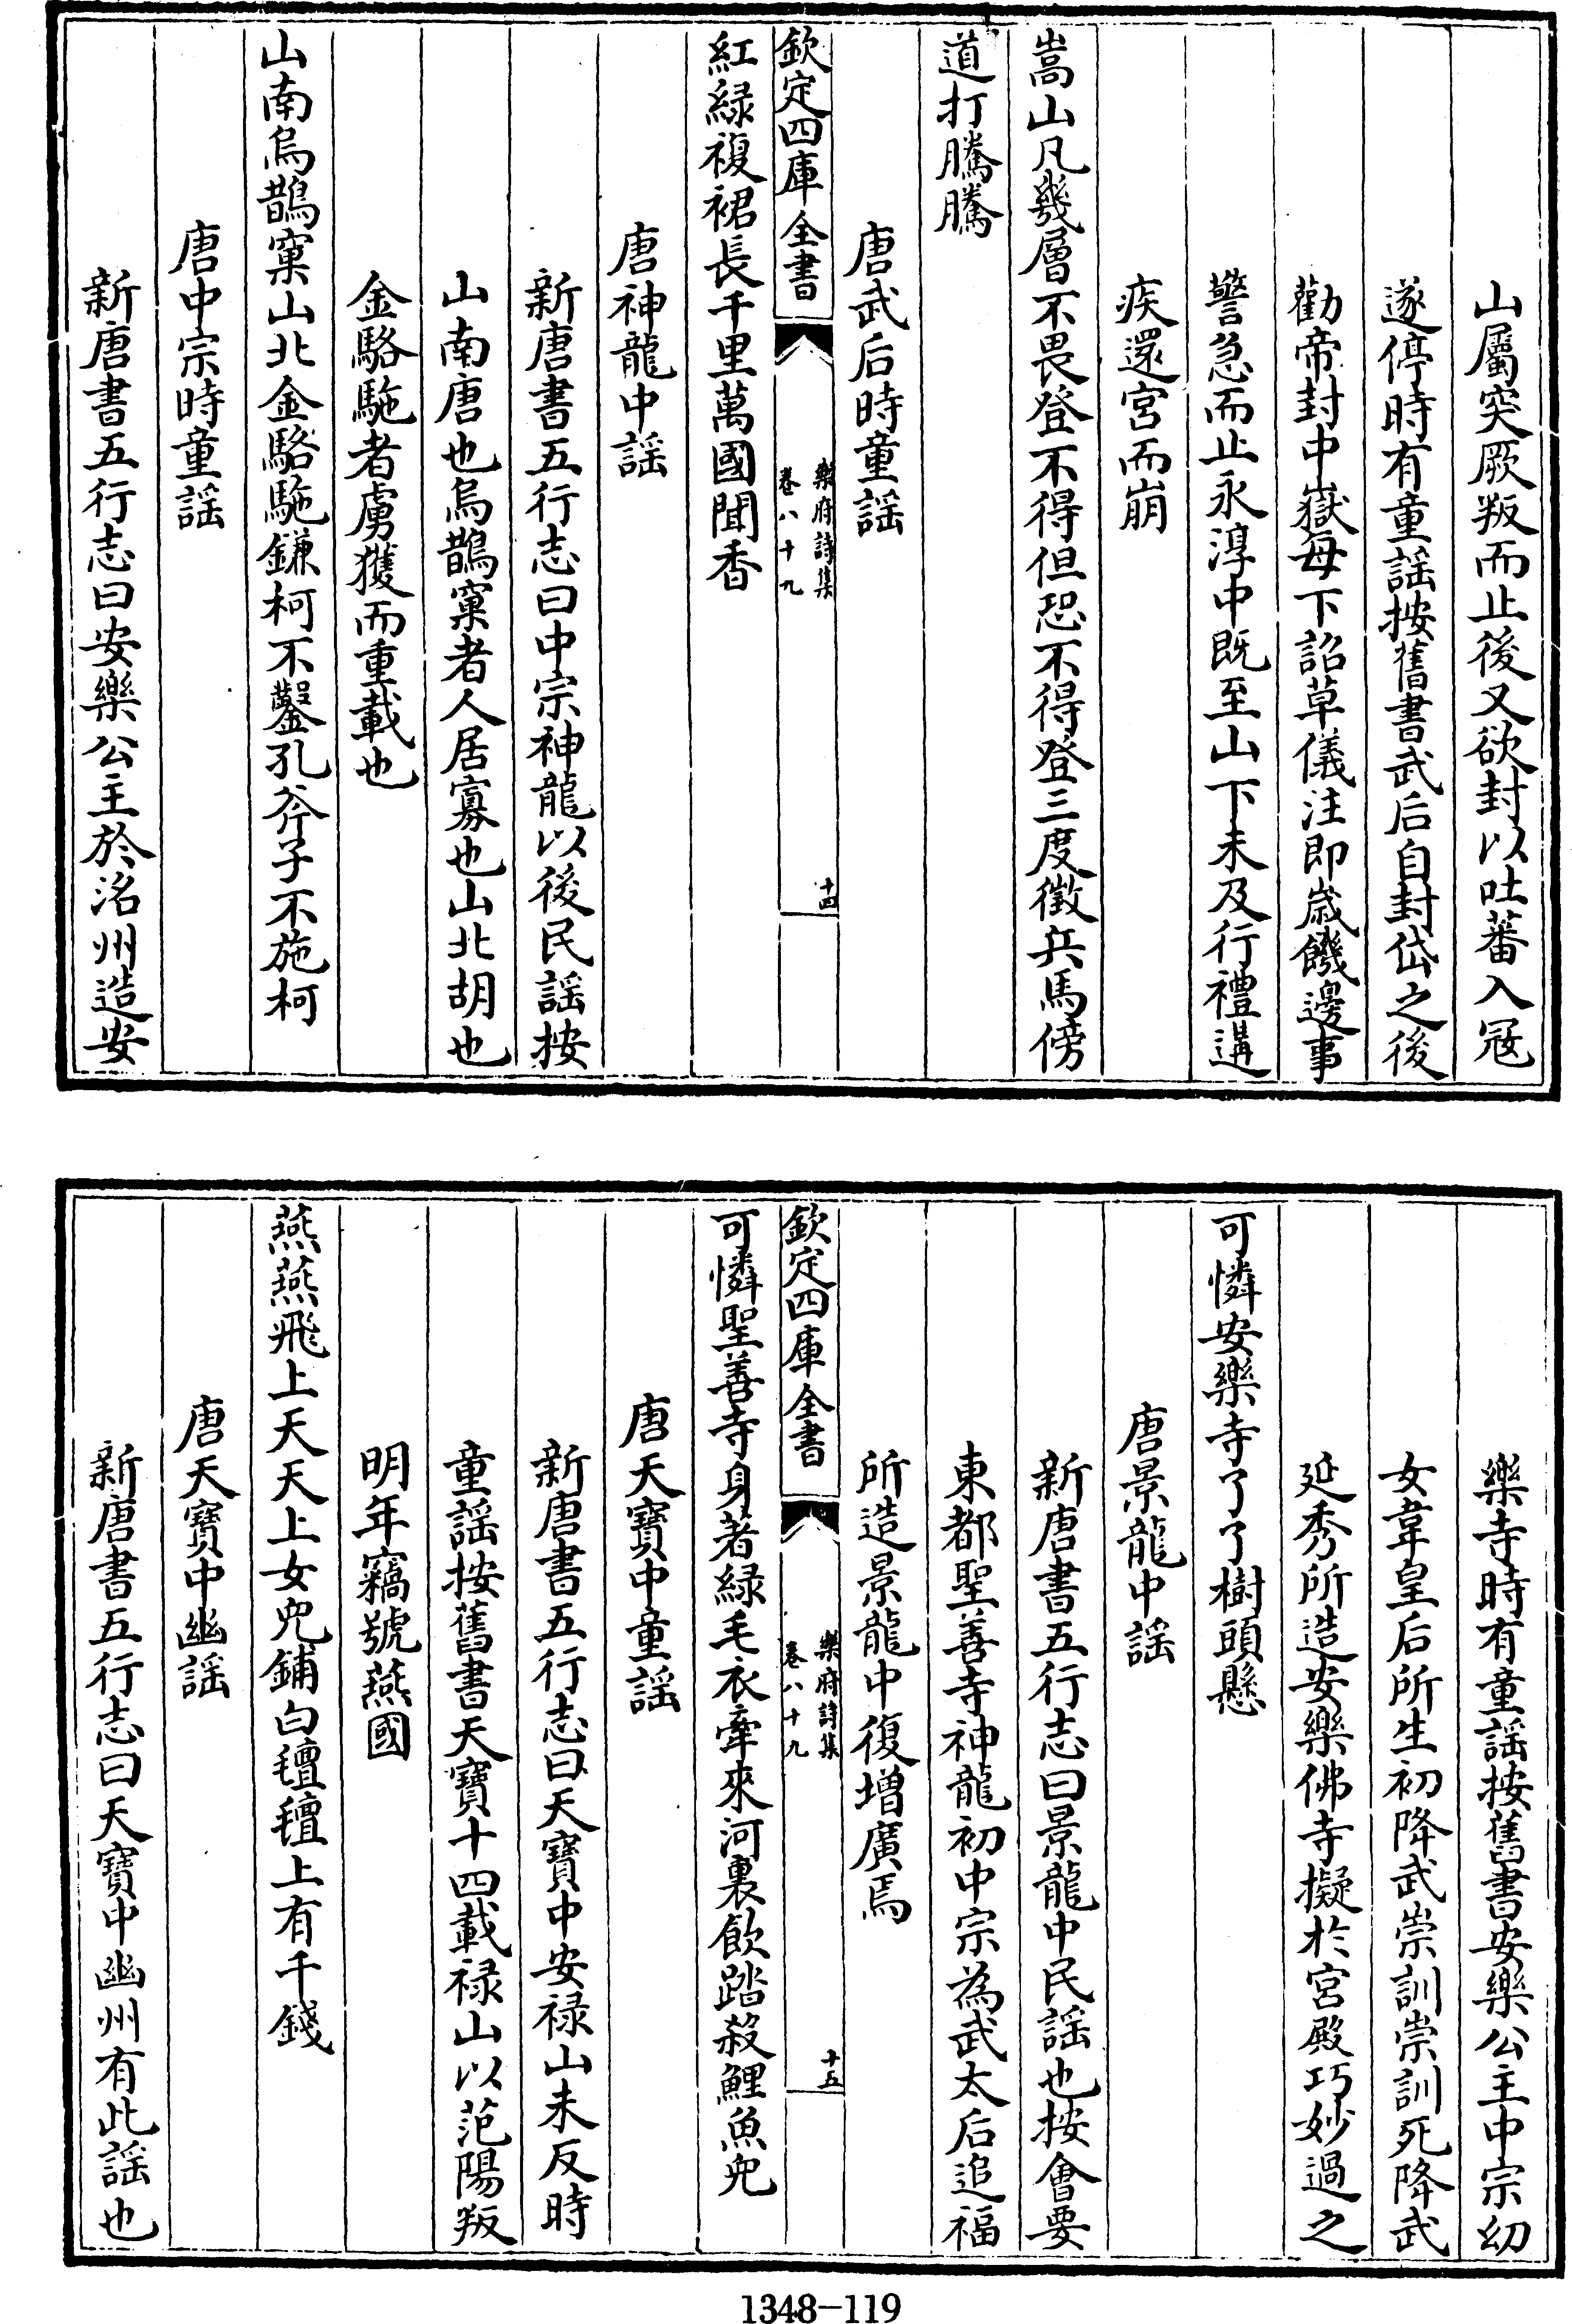 山屬突厥叛而止後又欲封以吐蕃入冦
遂停時有童謡按舊書武后自封岱之後
勸帝封中嶽每下詔草儀注即嵗饑邊事
警急而止永淳中既至山下未及行禮遘
疾還宮而崩
嵩山凡幾層不畏登不得但恐不得登三度徵兵馬傍
道打騰騰
唐武后時童謡
欽定四庫全書
樂府詩集
卷八十九
十四
紅緑複裙長千里萬國聞香
唐神龍中謡
新唐書五行志曰中宗神龍以後民謡按
山南唐也烏鵲窠者人居寡也山北胡也
金駱駞者虜獲而重載也
山南烏鵲窠山北金駱駞鎌柯不鑿孔斧子不施柯
唐中宗時童謡
新唐書五行志曰安樂公主於洺州造安
樂寺時有童謡按舊書安樂公主中宗幼
女韋皇后所生初降武崇訓崇訓死降武
延秀所造安樂佛寺擬於宮殿巧妙過之
可憐安樂寺了了樹頭懸
唐景龍中謡
新唐書五行志曰景龍中民謡也按會要
東都聖善寺神龍初中宗為武太后追福
所造景龍中復増廣焉
欽定四庫全書
樂府詩集
卷八十九
十五
可憐聖善寺身著緑毛衣牽來河裏飲踏殺鯉魚兒
唐天寶中童謡
新唐書五行志曰天寶中安禄山未反時
童謡按舊書天寶十四載禄山以范陽叛
明年竊號燕國
燕燕飛上天天上女兒鋪白氊氊上有千錢
唐天寶中幽謡
新唐書五行志曰天寶中幽州有此謡也
1348-119